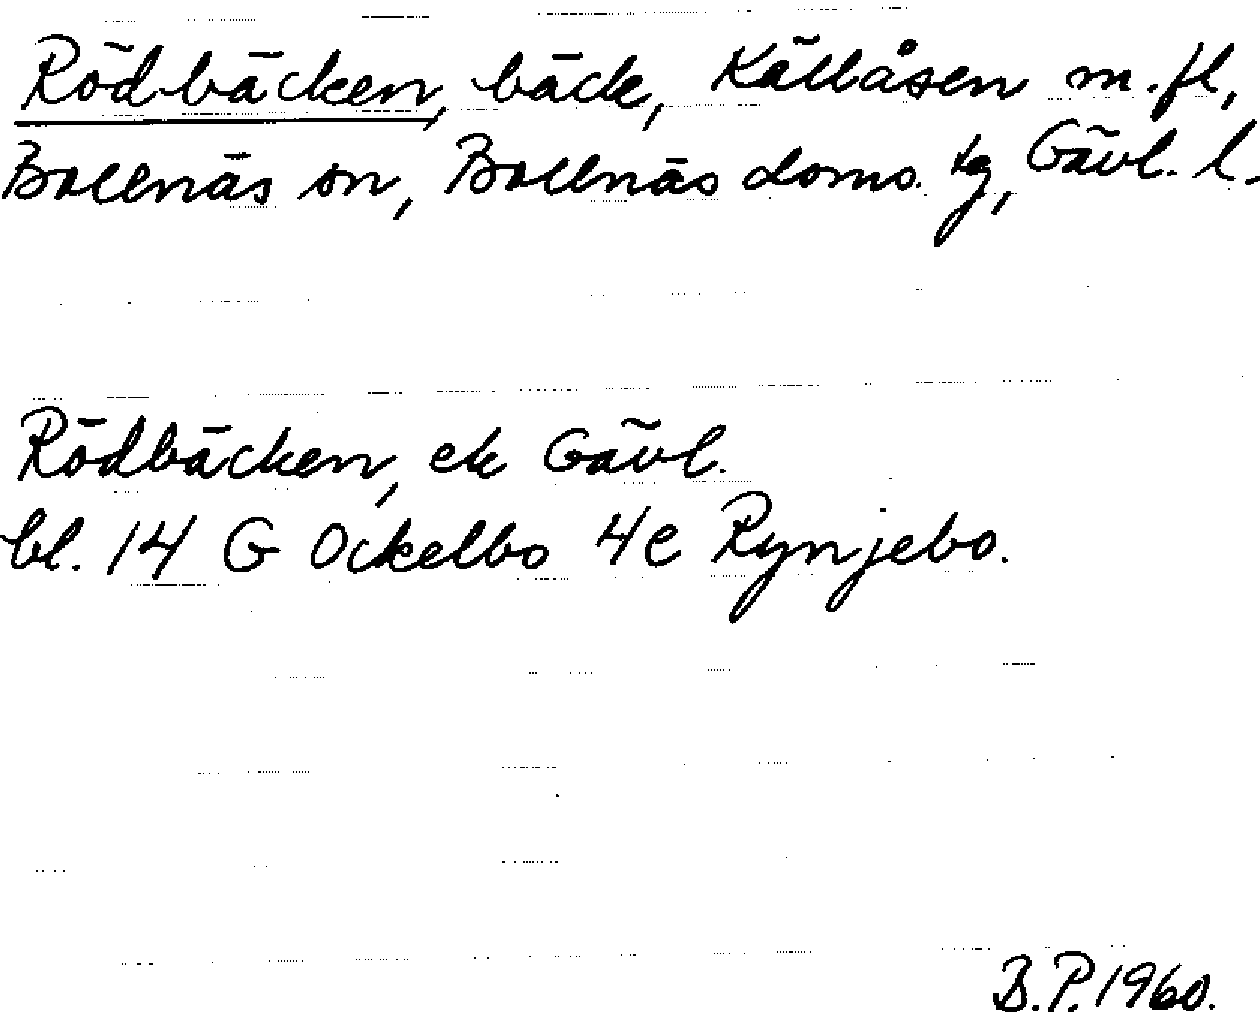 Rödbäcken, bäck, Källåsen m.fl,
Bollnäs sn, Bollnäs doms. tg, Gävl. l.
Rödbäcken, ek Gävl.
bl. 14 G Ockelbo 4e Rynjebo.
B.P. 1960.